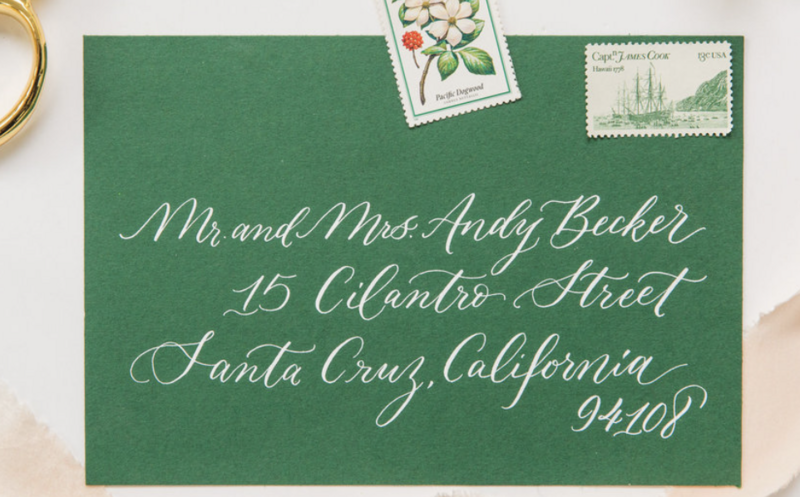 Pacific Dogwood
Captn James Cook
13c USA
Hawaii 1778
Mr. and Mrs. Andy Becker
15 Cilantro Street
Santa Cruz, California
94108